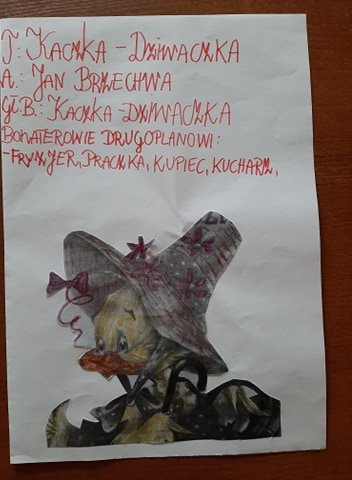 T: KACZKA-DZIWACZKA
A: JAN BRZECHWA
GŁ.B: KACZKA-DZIWACZKA
BOHATEROWIE DRUGOPLANOWI:
-FRYZJER, PRACZKA, KUPIEC, KUCHARZ,